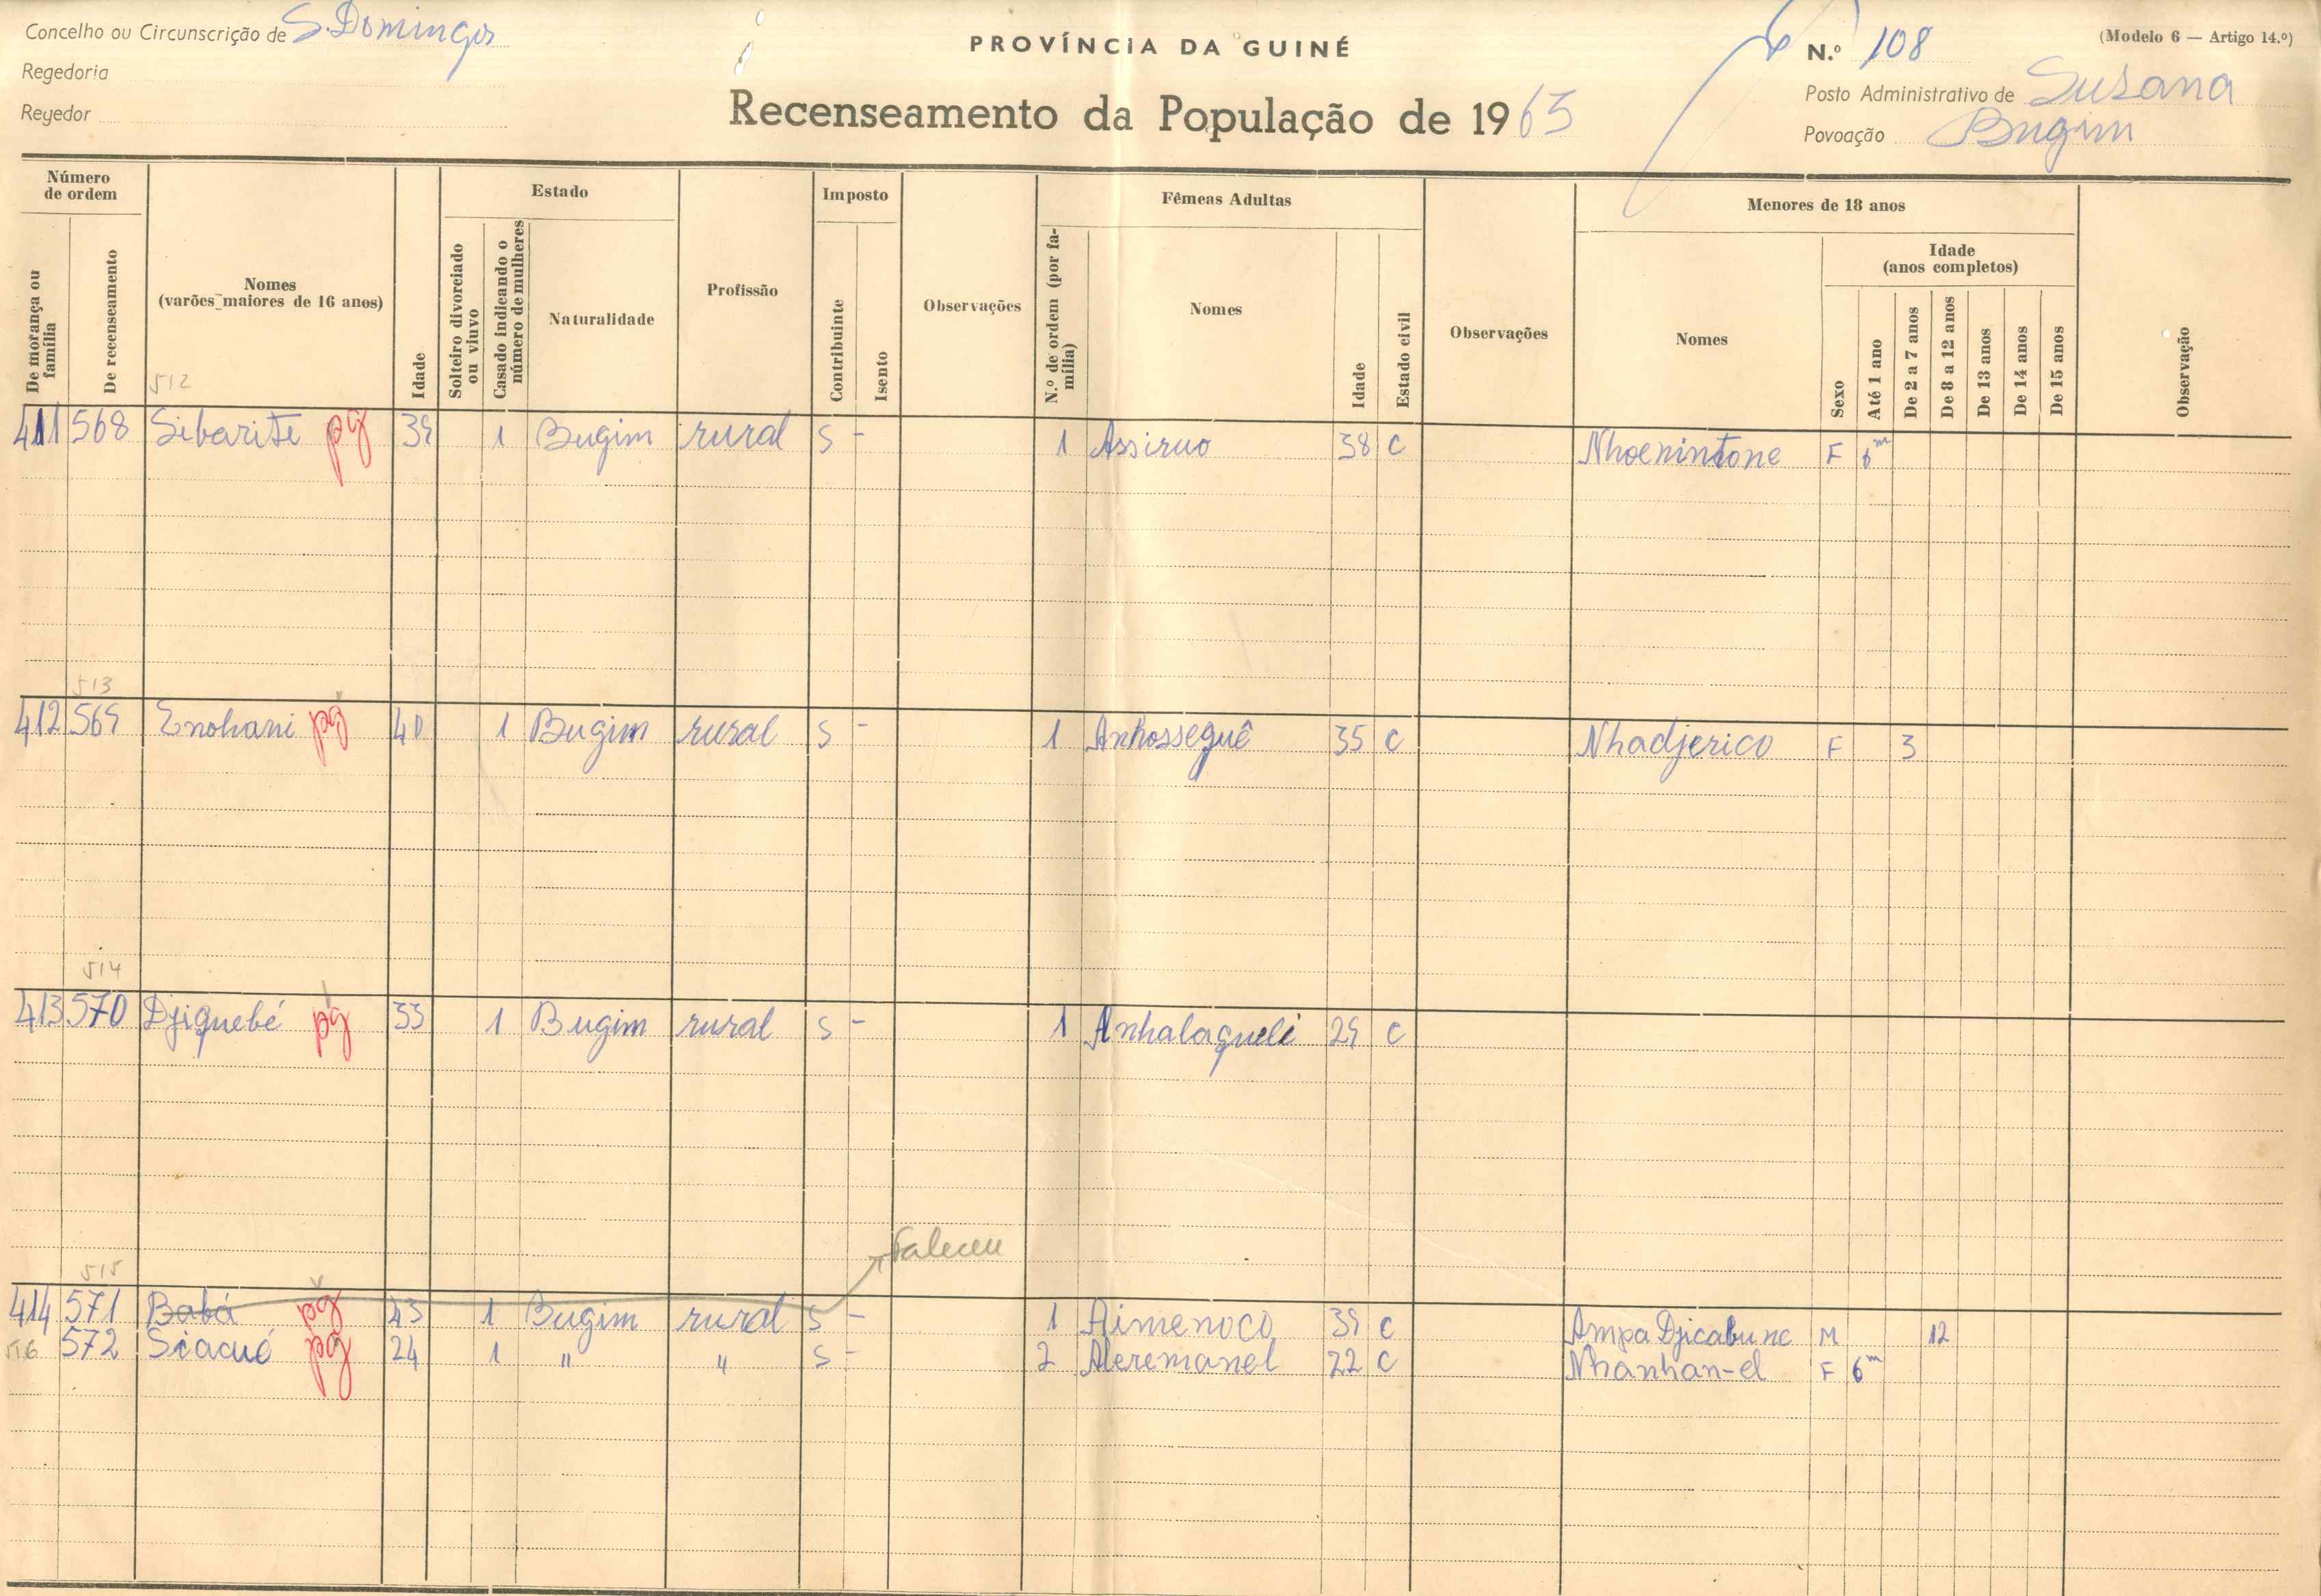 Concelho ou Circunscrição de S. Domingos
PROVÍNCIA DA GUINÉ
N.º 108
(Modelo 6 — Artigo 14.º)
Regedoria
Posto Administrativo de Susana
Regedor
Recenseamento da População de 1965
Povoação Bugim
Número de ordem
De morança ou família
De recenseamento
Nomes
(varões maiores de 16 anos)
Idade
Estado
Solteiro divorciado ou viuvo
Casado indicando o número de mulheres
Naturalidade
Profissão
Imposto
Contribuinte
Isento
Observações
Fêmeas Adultas
N.º de ordem (por família)
Nomes
Idade
Estado civil
Observações
Menores de 18 anos
Nomes
Sexo
Idade
(anos completos)
Até 1 ano
De 2 a 7 anos
De 8 a 12 anos
De 13 anos
De 14 anos
De 15 anos
Observação
512
411 568 Sibarite pg 39 1 Bugim rural S - 1 Assiruo 38 C Nhoenintone F 6m
513
412 569 Enohani pg 40 1 Bugim rural S - 1 Anhosseguê 35 C Nhadjerico F 3
514
413 570 Djiguebé pg 33 1 Bugim rural S - 1 Anhalaquelé 29 C
Faleceu
515
414 571 Babá pg 43 1 Bugim rural S - 1 Aimenoco 39 C Ampa Djicabune M 12
516 572 Siacué pg 24 1 " " S - 2 Aleremanel 22 C Nhanhan-el F 6m